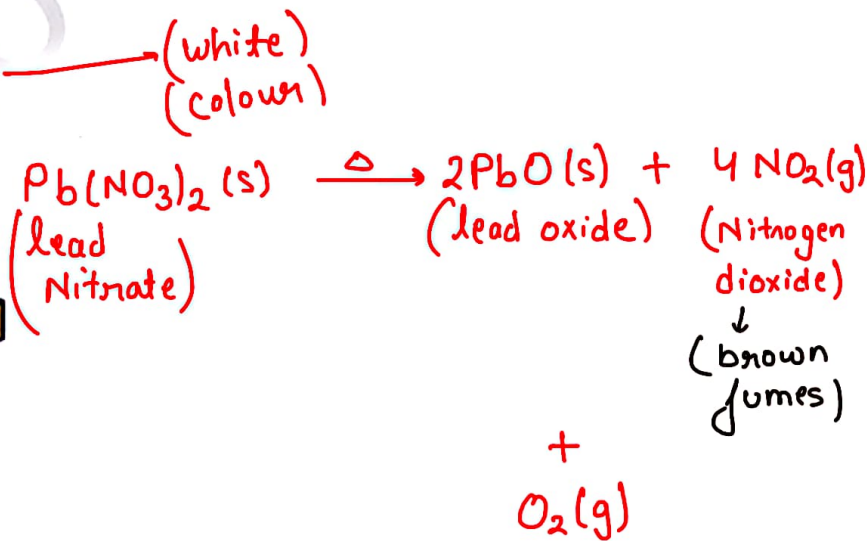 (white)
(colour)
Pb(NO₃)₂ (s) —Δ→ 2PbO(s) + 4 NO₂(g)
(lead Nitrate) (lead oxide) (Nitrogen dioxide)
↓
(brown
fumes)
+
O₂(g)